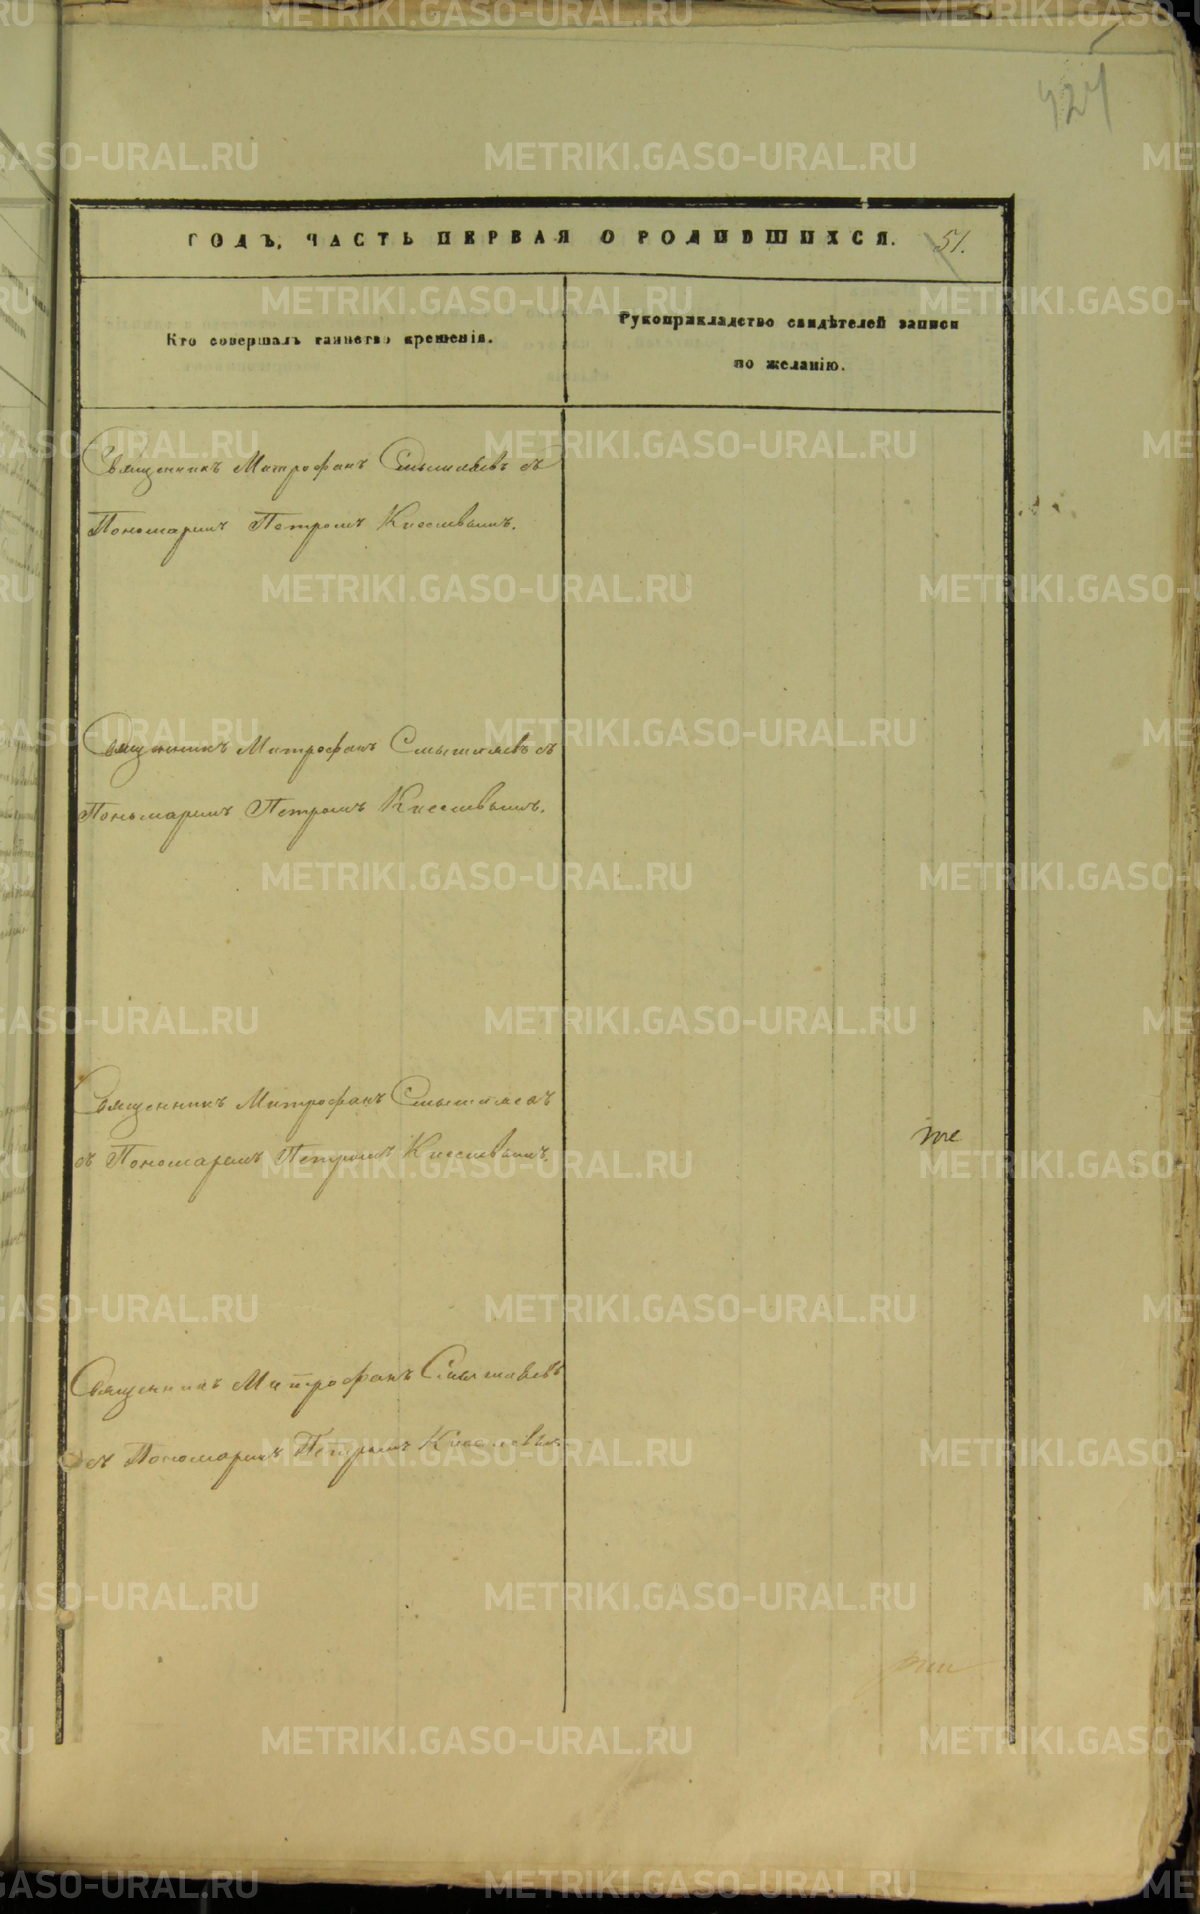 424
ГОДЪ, ЧАСТЬ ПЕРВАЯ О РОДИВШИХСЯ. 51.
Кто совершалъ таинство крещенія.
Рукоприкладство свидѣтелей записи
по желанію.
Священникъ Митрофанъ Смышляевъ съ
Пономаремъ Петромъ Киселевымъ.
Священникъ Митрофанъ Смышляевъ съ
Пономаремъ Петромъ Киселевымъ.
Священникъ Митрофанъ Смышляевъ
съ Пономаремъ Петромъ Киселевымъ.
Священникъ Митрофанъ Смышляевъ
съ Пономаремъ Петромъ Киселевымъ.
METRIKI.GASO-URAL.RU